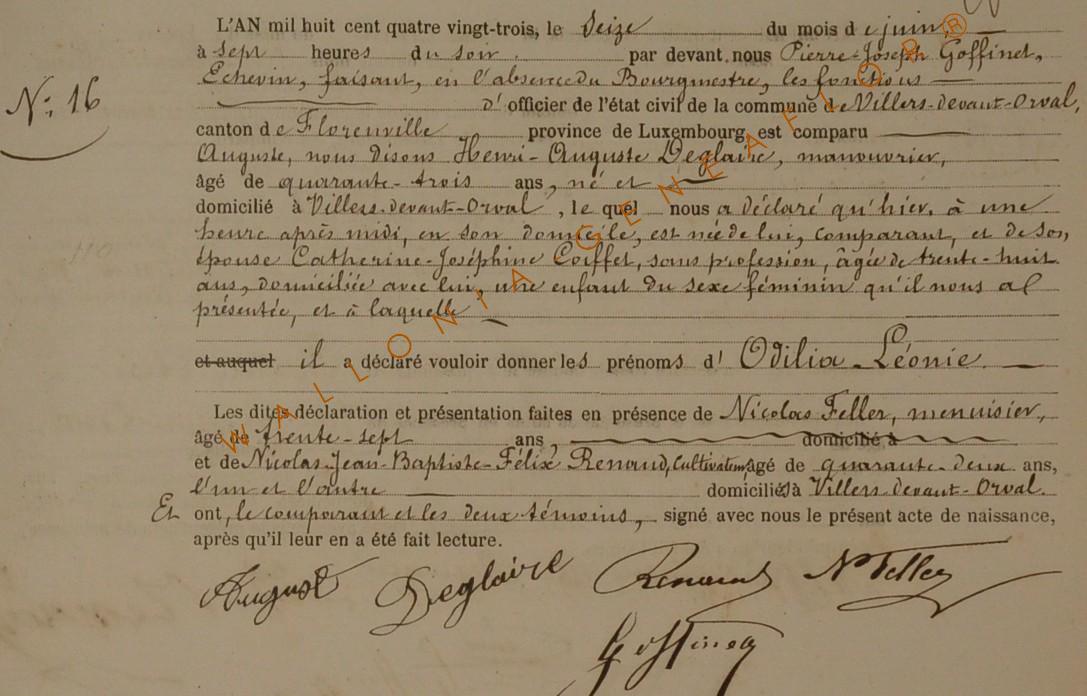 L'AN mil huit cent quatre vingt-trois, le Seize du mois de juin,
à sept heures du soir par devant nous Pierre-Joseph Goffinet,
Echevin, faisant, en l'absence du Bourgmestre, les fonctions
N: 16
d'officier de l'état civil de la commune de Villers-devant-Orval,
canton de Florenville province de Luxembourg est comparu
Auguste, nous disons Henri-Auguste Deglaire, manouvrier,
âgé de quarante-trois ans, né et
domicilié à Villers-devant-Orval, lequel nous a déclaré qu'hier, à une
heure après midi, en son domicile, est née de lui, comparant, et de son
épouse Catherine-Joséphine Coiffet, sans profession, âgée de trente-huit
ans, domiciliée avec lui, une enfant du sexe féminin qu'il nous a
présentée, et à laquelle
et auquel il a déclaré vouloir donner les prénoms d'Odilia-Léonie
Les dites déclaration et présentation faites en présence de Nicolas Feller, menuisier,
âgé de trente-sept ans, domicilié à
et de Nicolas-Jean-Baptiste-Félix Renaud, Cultivateur, âgé de quarante-deux ans,
l'un et l'autre domiciliés à Villers-devant-Orval.
Et ont, le comparant et les deux témoins, signé avec nous le présent acte de naissance,
après qu'il leur en a été fait lecture.
August Deglaire Renaud N Feller
Goffinet
WALLONIA GENEAFLOR®